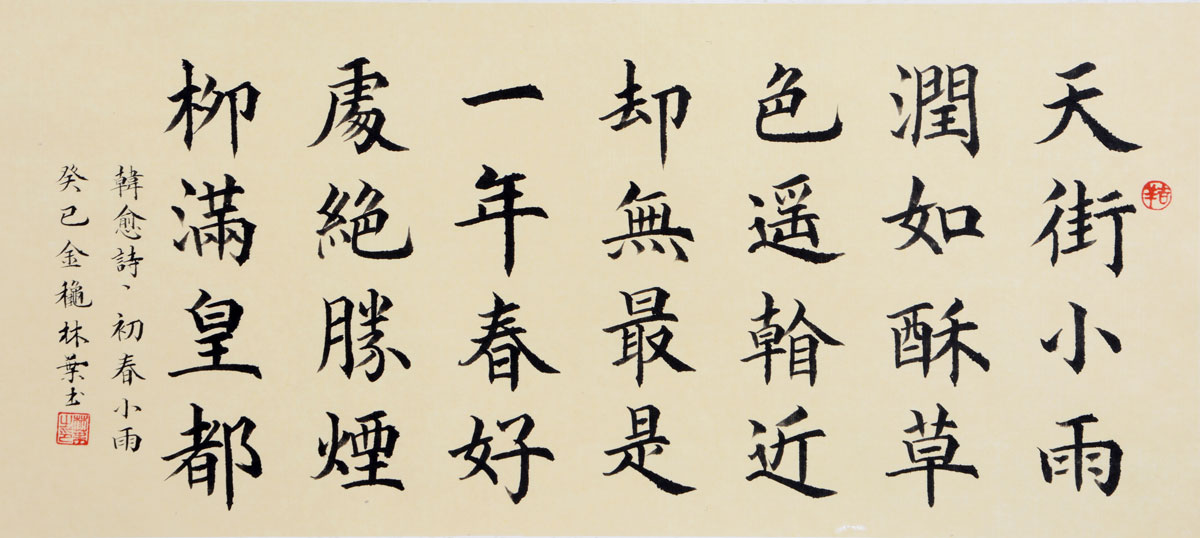 天街小雨
潤如酥草
色遥看近
却無最是
一年春好
處絕勝煙
柳滿皇都
韓愈詩、初春小雨
癸巳金穐林葉书